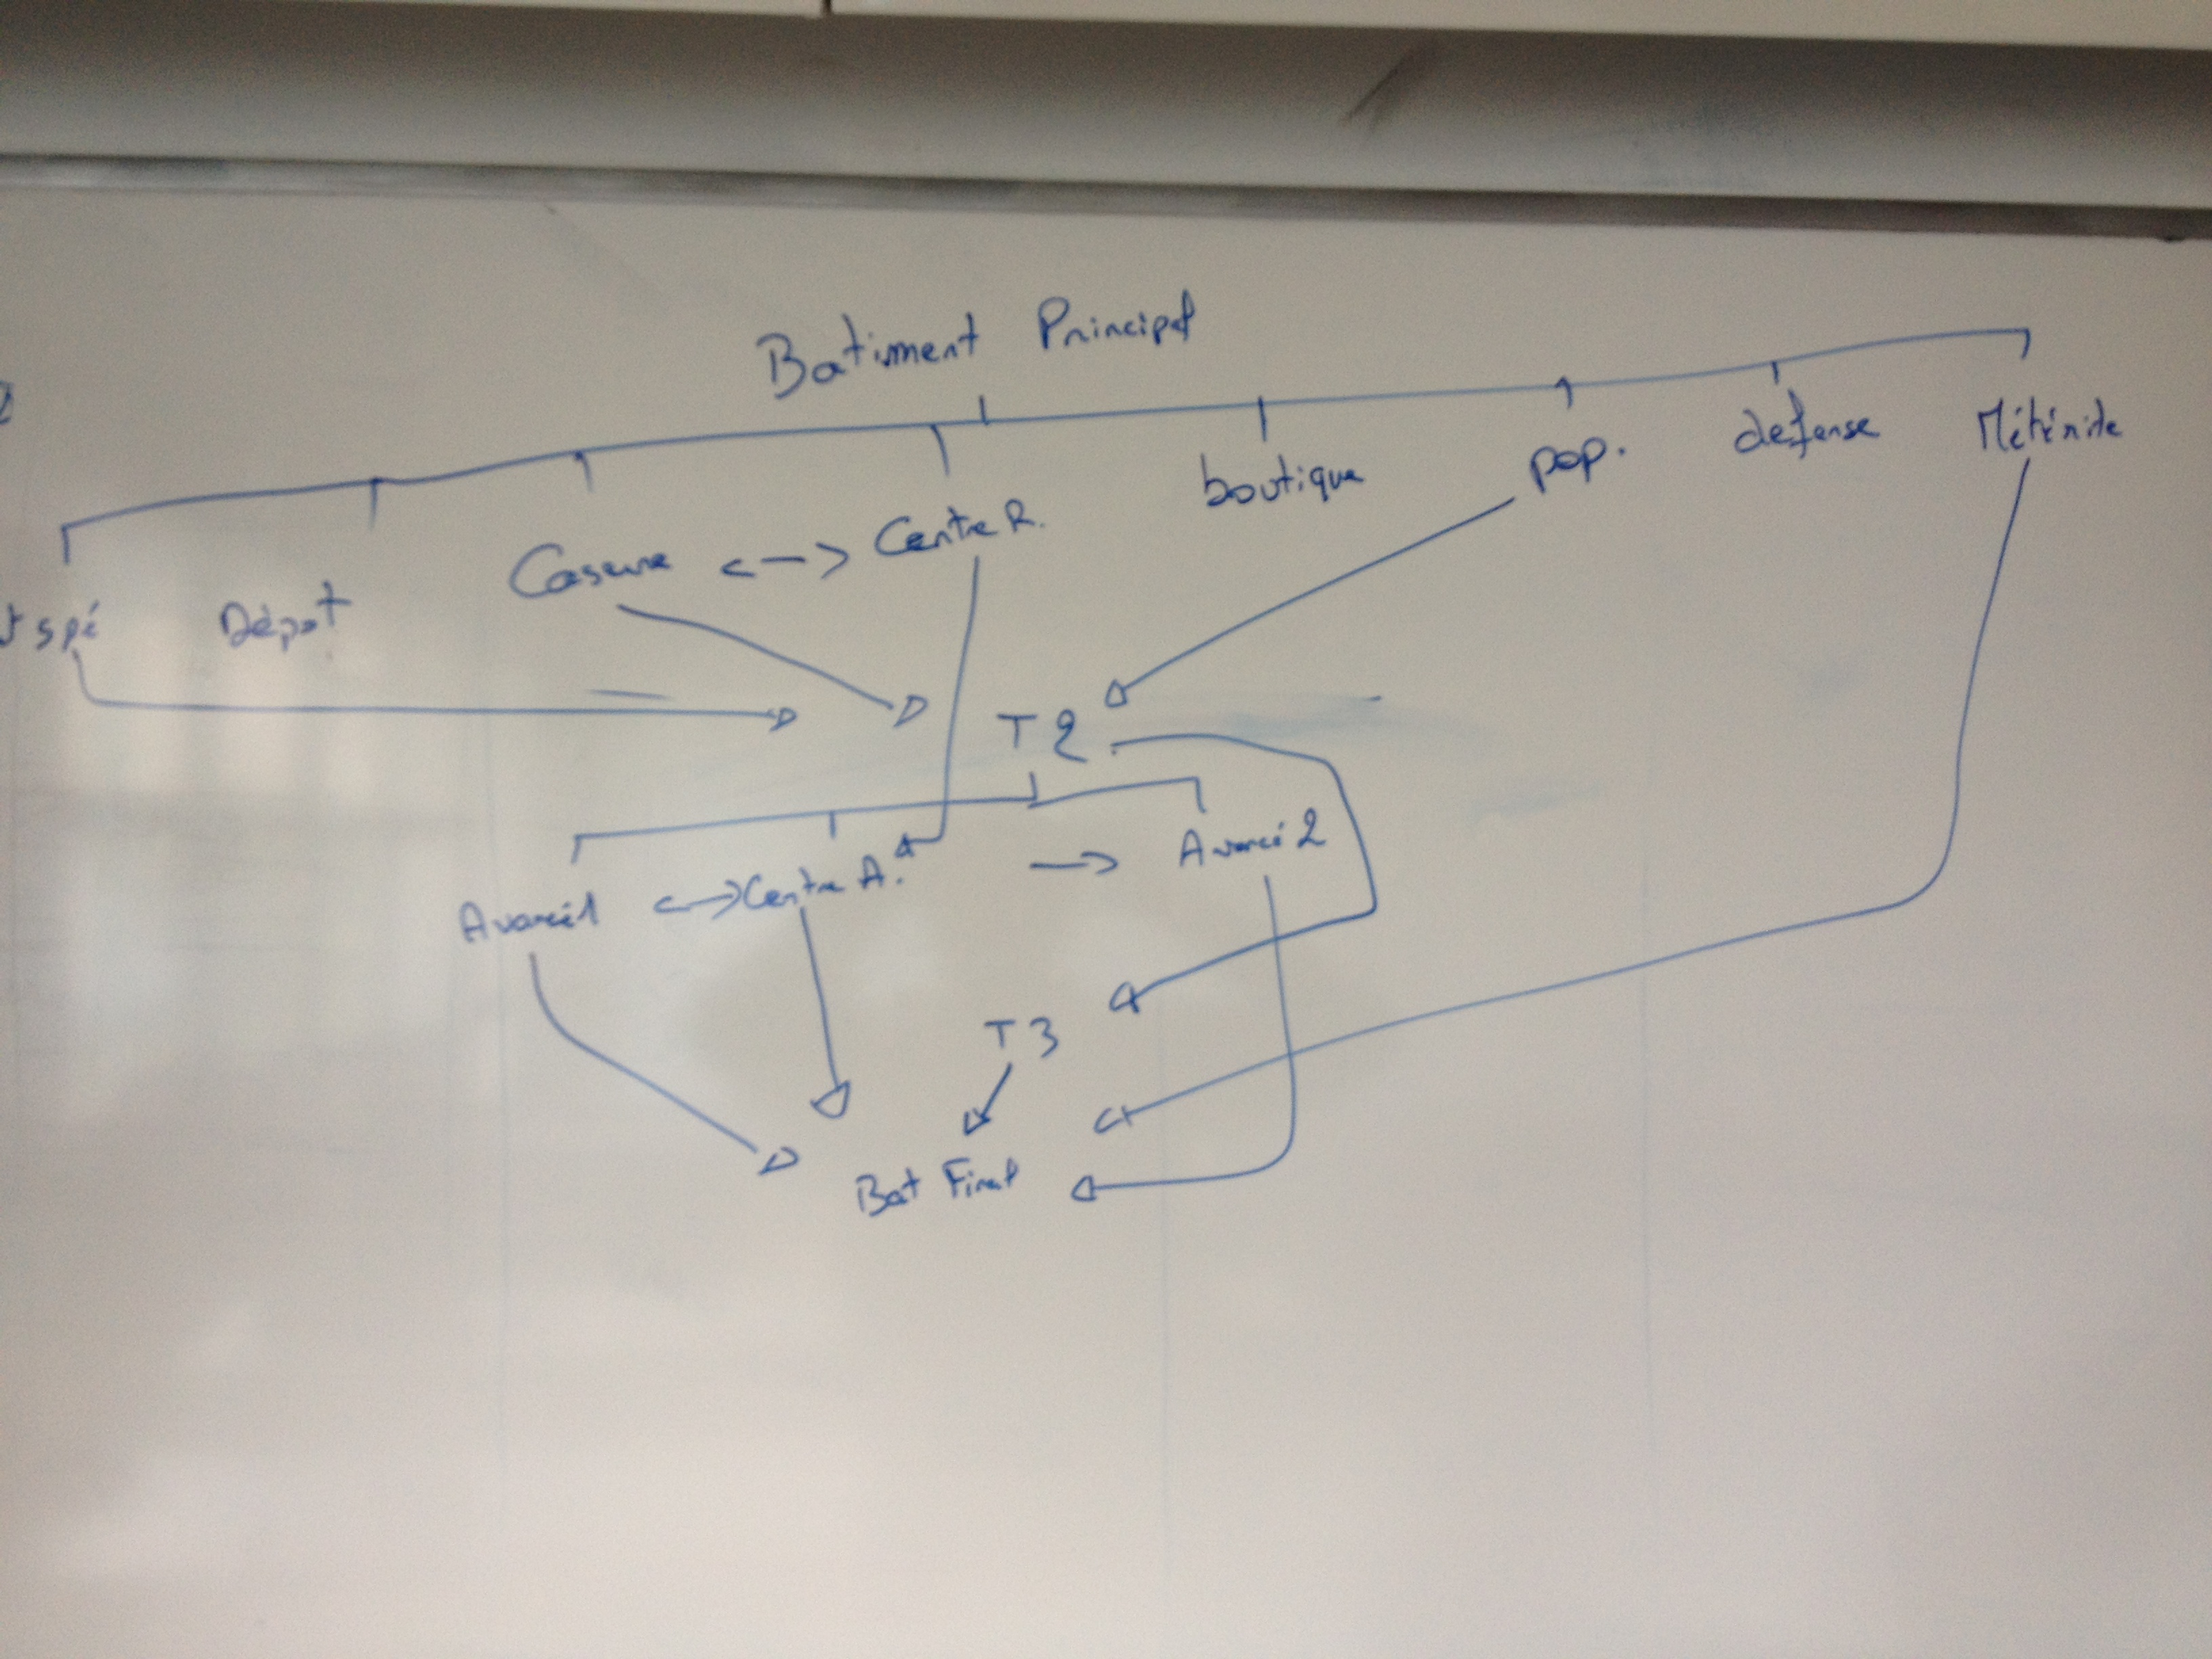 Batiment Principal
spé Dépot Caserne <-> Centre R. boutique pop. defense Météorite
T2
Avancé1 <-> Centre A. -> Avancé 2
T3
Bat Final